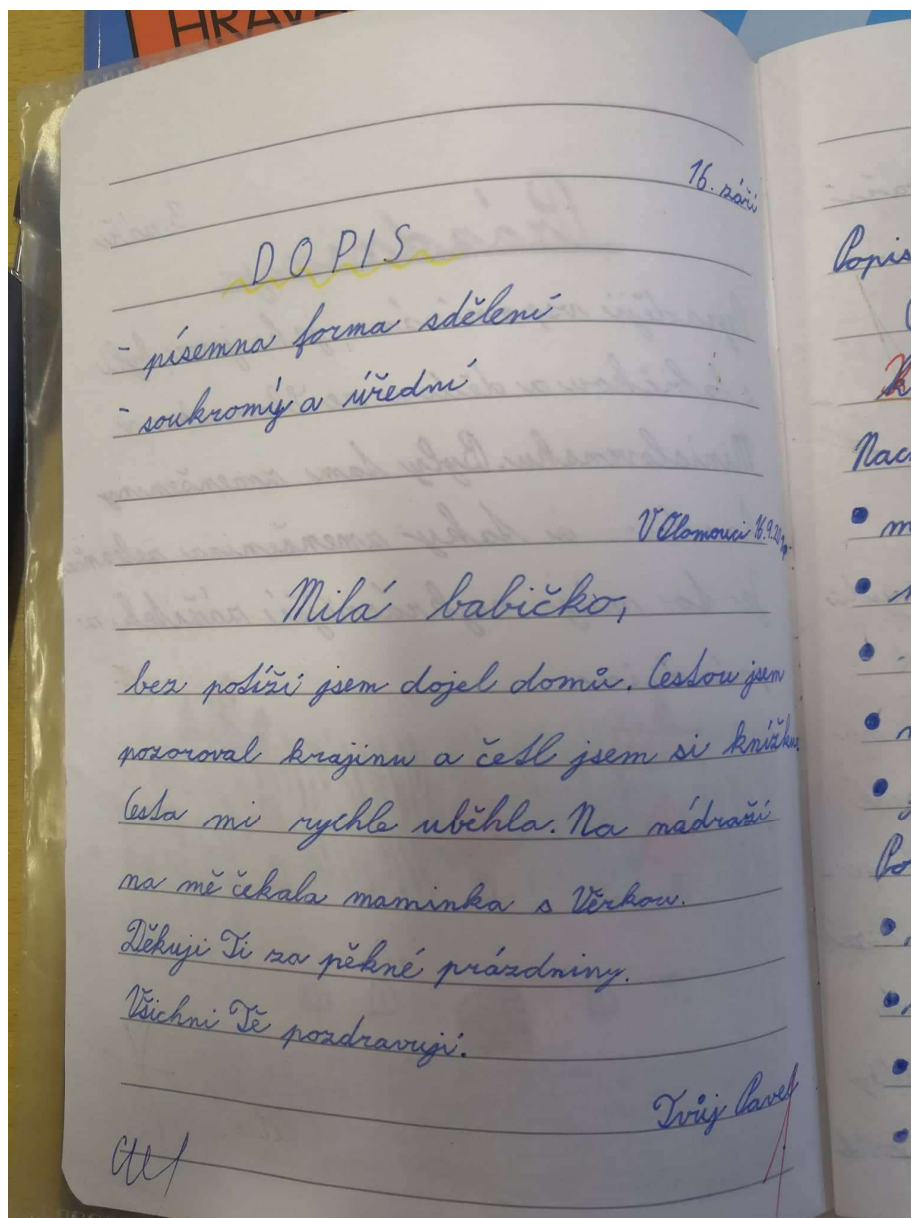 HRAVÁ
16. září
DOPIS
- písemna forma sdělení
- soukromý a úřední
V Olomouci 16.9.20
Milá babičko,
bez potíží jsem dojel domů. Cestou jsem
pozoroval krajinu a četl jsem si knížku.
Cesta mi rychle uběhla. Na nádraží
na mě čekala maminka s Věrkou.
Děkuji Ti za pěkné prázdniny.
Všichni Tě pozdravují.
Tvůj Pavel
Popis